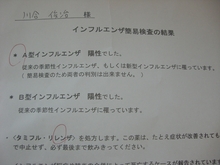 様
インフルエンザ簡易検査の結果
● A型インフルエンザ 陽性でした。
従来の季節性インフルエンザ、もしくは新型インフルエンザに罹っています。
(簡易検査のため両者の判別は出来ません。)
● B型インフルエンザ 陽性でした。
従来の季節性インフルエンザに罹っています。
(タミフル・リレンザ)を処方します。この薬は、たとえ症状が改善されても
で中止せず、必ず最後まで飲みきってください。